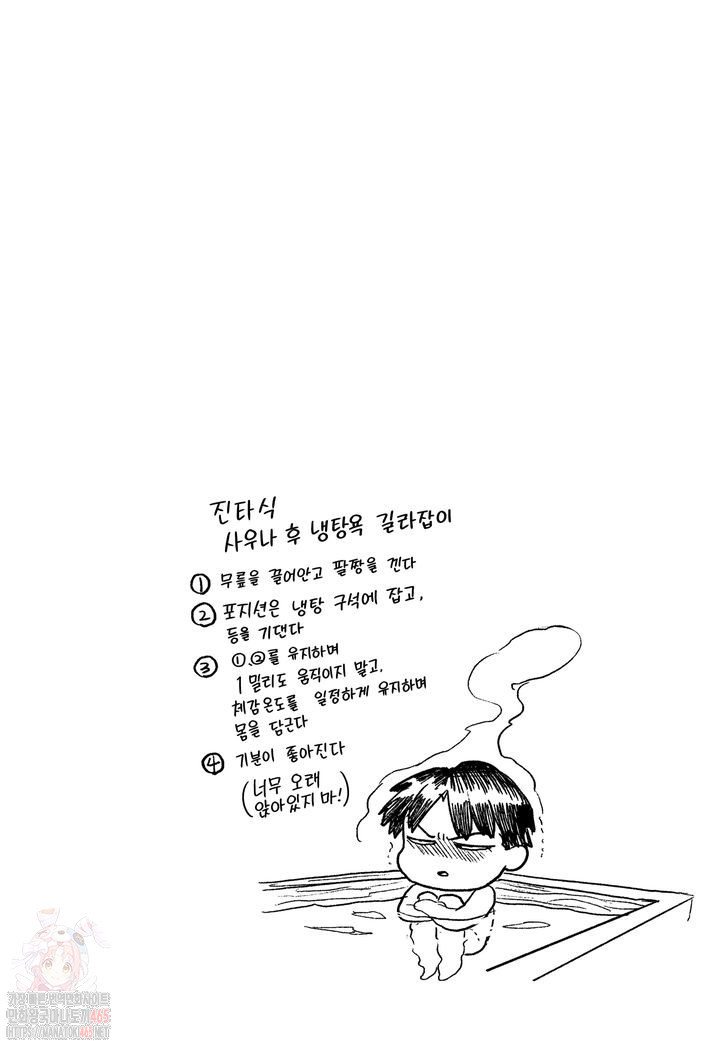 진타식
사우나 후 냉탕욕 길라잡이
① 무릎을 끌어안고 팔짱을 낀다
② 포지션은 냉탕 구석에 잡고,
등을 기댄다
③ ①,②를 유지하며
1밀리도 움직이지 말고,
체감온도를 일정하게 유지하며
몸을 담근다
④ 기분이 좋아진다
(너무 오래
앉아있지 마!)
가장 빠른 번역만화사이트
만화왕국마나토끼465
HTTPS://MANATOKI465.NET